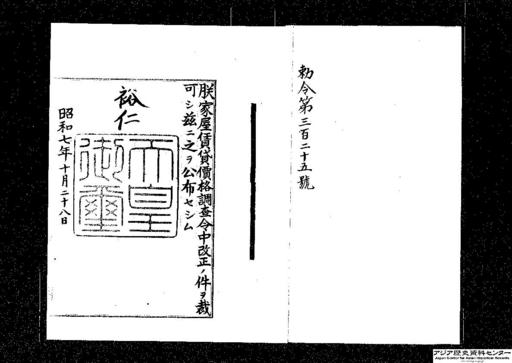 勅令第三百二十五號
朕家屋賃貸價格調査令中改正ノ件ヲ裁
可シ茲ニ之ヲ公布セシム
裕仁
天皇
御璽
昭和七年十月二十八日
アジア歴史資料センター
Japan Center for Asian Historical Records